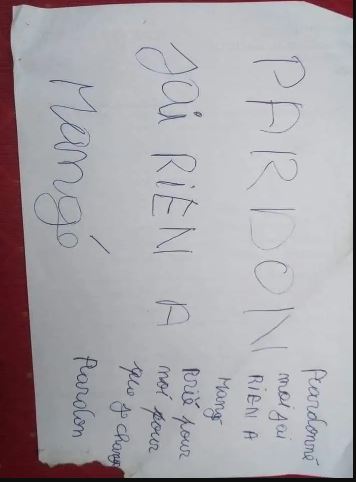 PARDON
Jai RiEN A
Mangé
Pardonné
moi jai
RIEN A
Mang
Prié pour
moi pour
que je change
Pardon